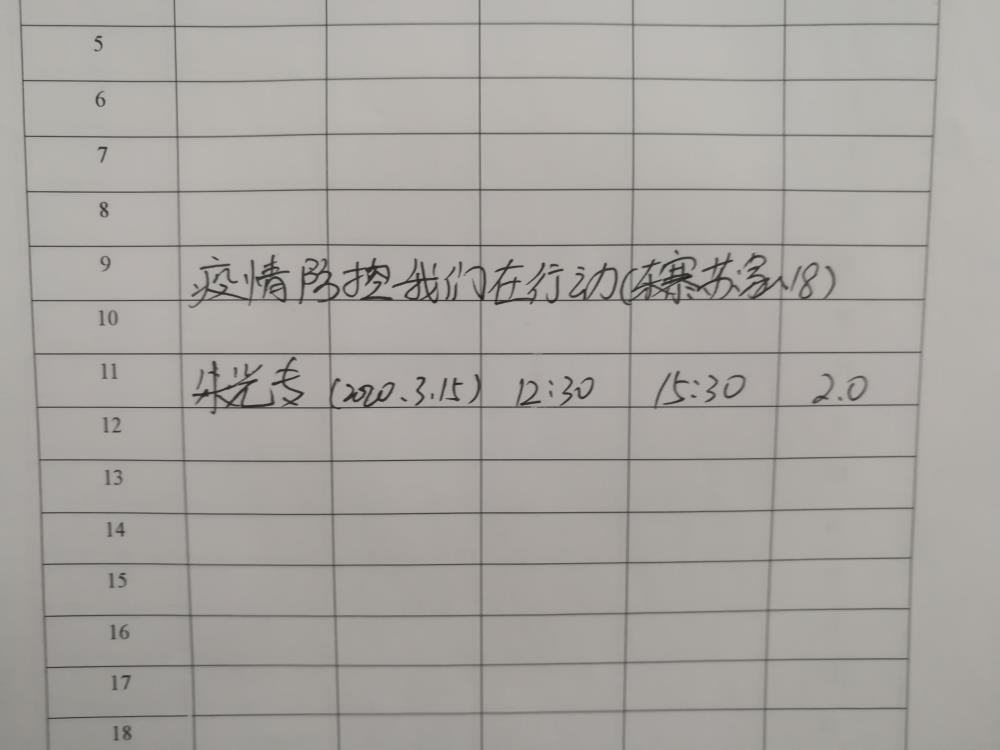 5
6
7
8
9 疫情防控我们在行动(东寨苏家18)
10
11 朱光专 (2020.3.15) 12:30 15:30 2.0
12
13
14
15
16
17
18